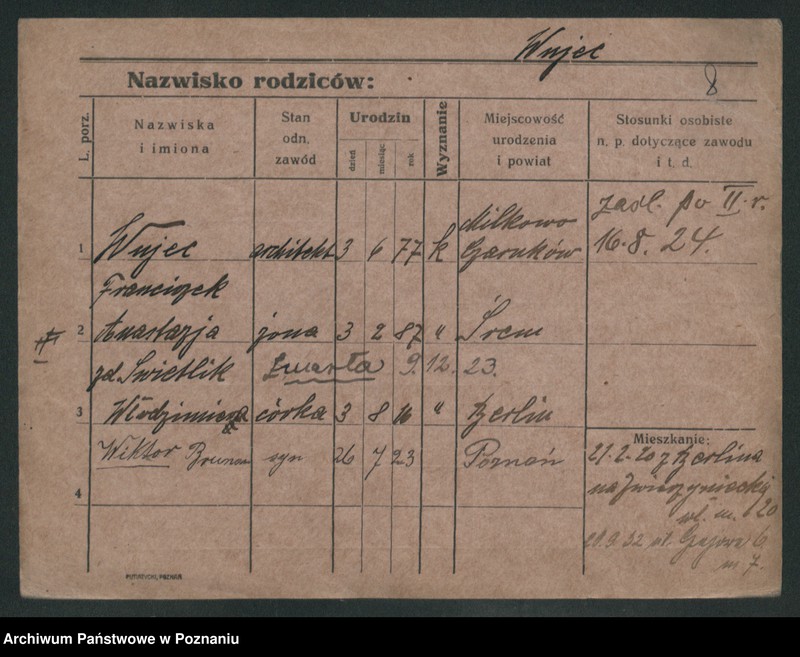 Wujec
8
Nazwisko rodziców:
L. porz.
Nazwiska
i imiona
Stan
odn.
zawód
Urodzin
dzień
miesiąc
rok
Wyznanie
Miejscowość
urodzenia
i powiat
Stosunki osobiste
n. p. dotyczące zawodu
i t. d.
zadl. po II. r.
16. 8. 24.
Milkowo
1 Wujec architekt 3 6 77 k Czarnków
Franciszek
2 Anastazja żona 3 2 87 " Śrem
zd. Swietlik Zmarła 9. 12. 23.
3 Włodzimiera córka 3 8 16 " Berlin
4 Wiktor Brunon syn 26 7 23 Poznań
Mieszkanie:
21. 2. 20 z Berlina
na Zwierzyniecką
20
21. 9. 32 ul. Gajowa 6
m 7.
PUTIATYCKI, POZNAŃ
Archiwum Państwowe w Poznaniu